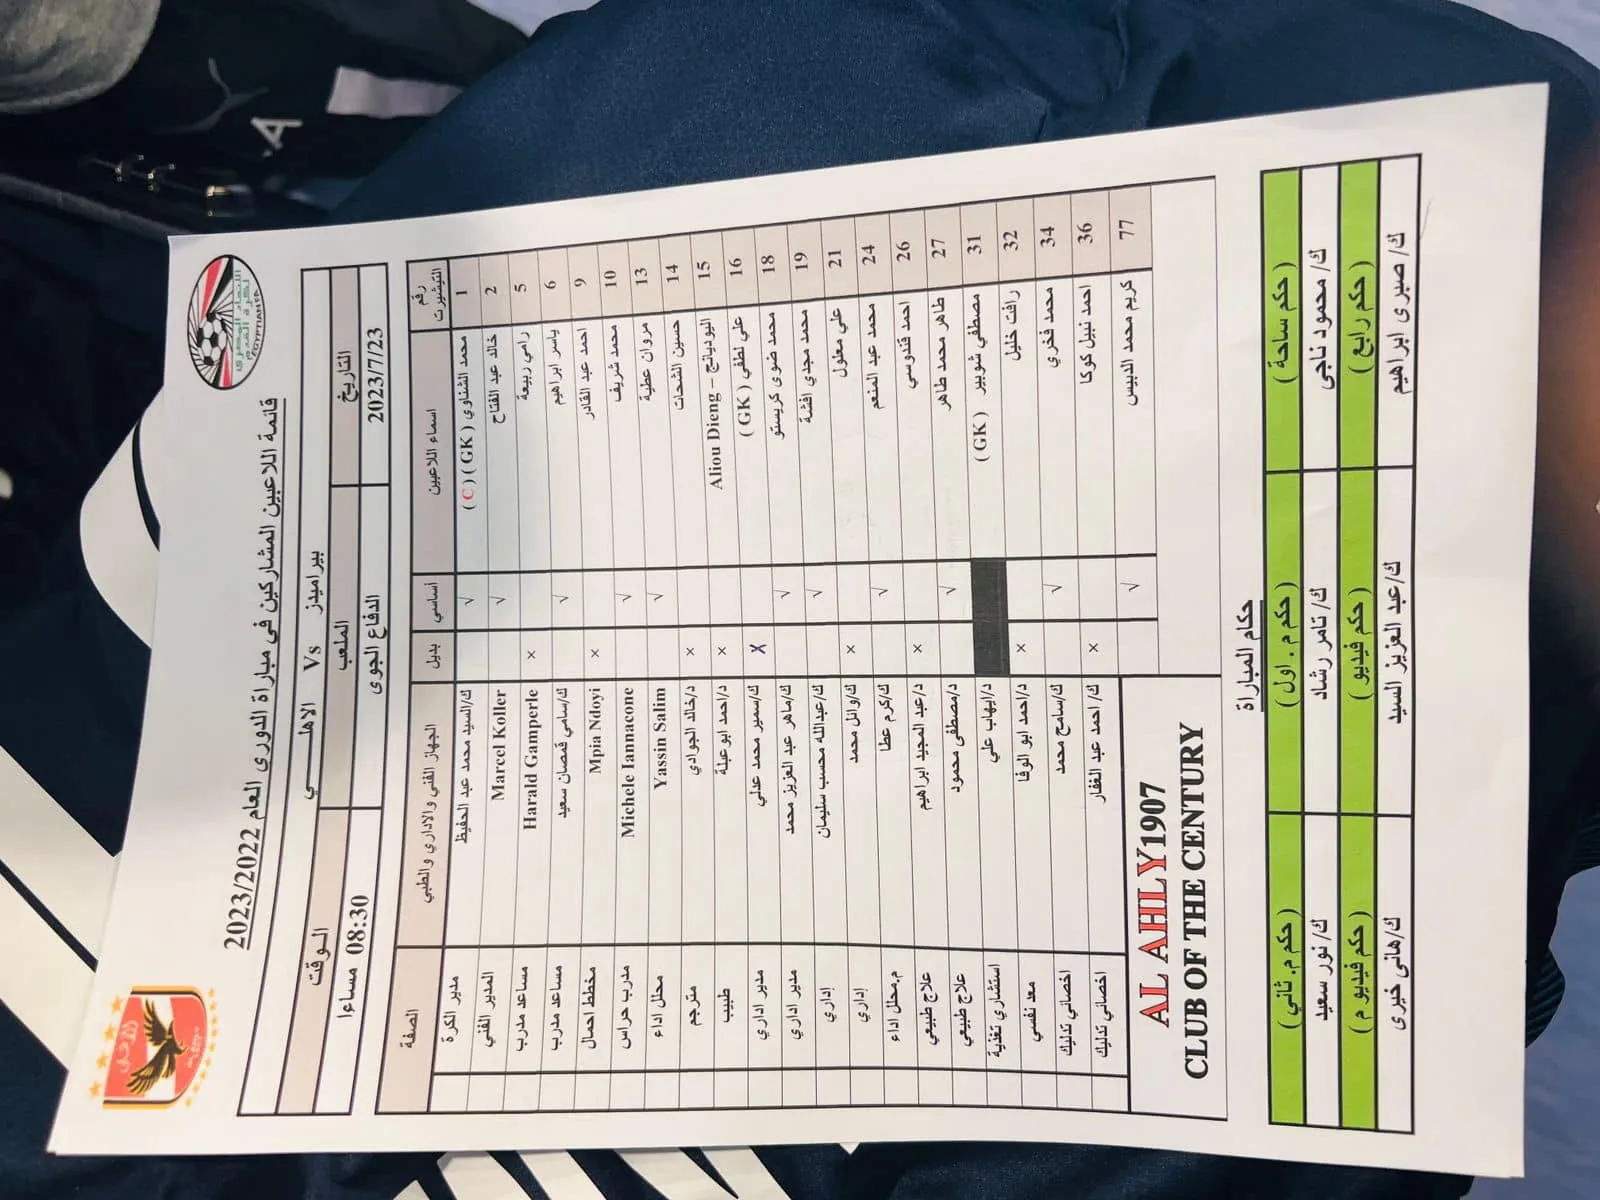 الاتحاد المصرى
لكرة القدم
EGYPTIAN FA
قائمة اللاعبين المشاركين فى مباراة الدورى العام 2023/2022
بيراميدز Vs الاهلـــــي
التاريخ الملعب الـوقت
2023/7/23 الدفاع الجوى 08:30 مساءا
رقم التيشيرت اسماء اللاعبين أساسي بديل الجهاز الفني والاداري والطبي الصفة
1 محمد الشناوي ( GK ) ( C ) √ ك/السيد محمد عبد الحفيظ مدير الكرة
2 خالد عبد الفتاح √ Marcel Koller المدير الفني
5 رامي ربيعة × Harald Gamperle مساعد مدرب
6 ياسر ابراهيم √ ك/سامي قمصان سعيد مساعد مدرب
9 احمد عبد القادر × Mpia Ndoyi مخطط احمال
10 محمد شريف √ Michele Iannacone مدرب حراس
13 مروان عطية √ Yassin Salim محلل اداء
14 حسين الشحات × د/خالد الجوادي مترجم
15 اليوديانج – Aliou Dieng × د/احمد ابوعبلة طبيب
16 علي لطفي ( GK ) X ك/سمير محمد عدلي مدير اداري
18 محمد ضوى كريستو √ ك/ماهر عبد العزيز محمد مدير اداري
19 محمد مجدي افشة √ ك/عبدالله محسب سليمان إداري
21 علي معلول × ك/وائل محمد إداري
24 محمد عبد المنعم √ ك/كرم عطا م.محلل اداء
26 احمد قندوسي × د/عبد المجيد ابراهيم علاج طبيعي
27 طاهر محمد طاهر √ د/مصطفى محمود علاج طبيعي
31 مصطفي شوبير ( GK ) د/إيهاب علي استشاري تغذية
32 رافت خليل × د/احمد ابو الوفا معد نفسي
34 محمد فخري √ ك/سامح محمد اخصائي تدليك
36 احمد نبيل كوكا × ك/ احمد عبد الغفار اخصائي تدليك
77 كريم محمد الدبيس √
AL AHLY1907
CLUB OF THE CENTURY
حكام المباراة
( حكم ساحة ) ( حكم م . اول ) ( حكم م. ثاني )
ك/ محمود ناجى ك/ تامر رشاد ك/ نور سعيد
( حكم رابع ) ( حكم فيديو ) ( حكم فيديو م )
ك/ صبرى ابراهيم ك/عبد العزيز السيد ك/هانى خيرى